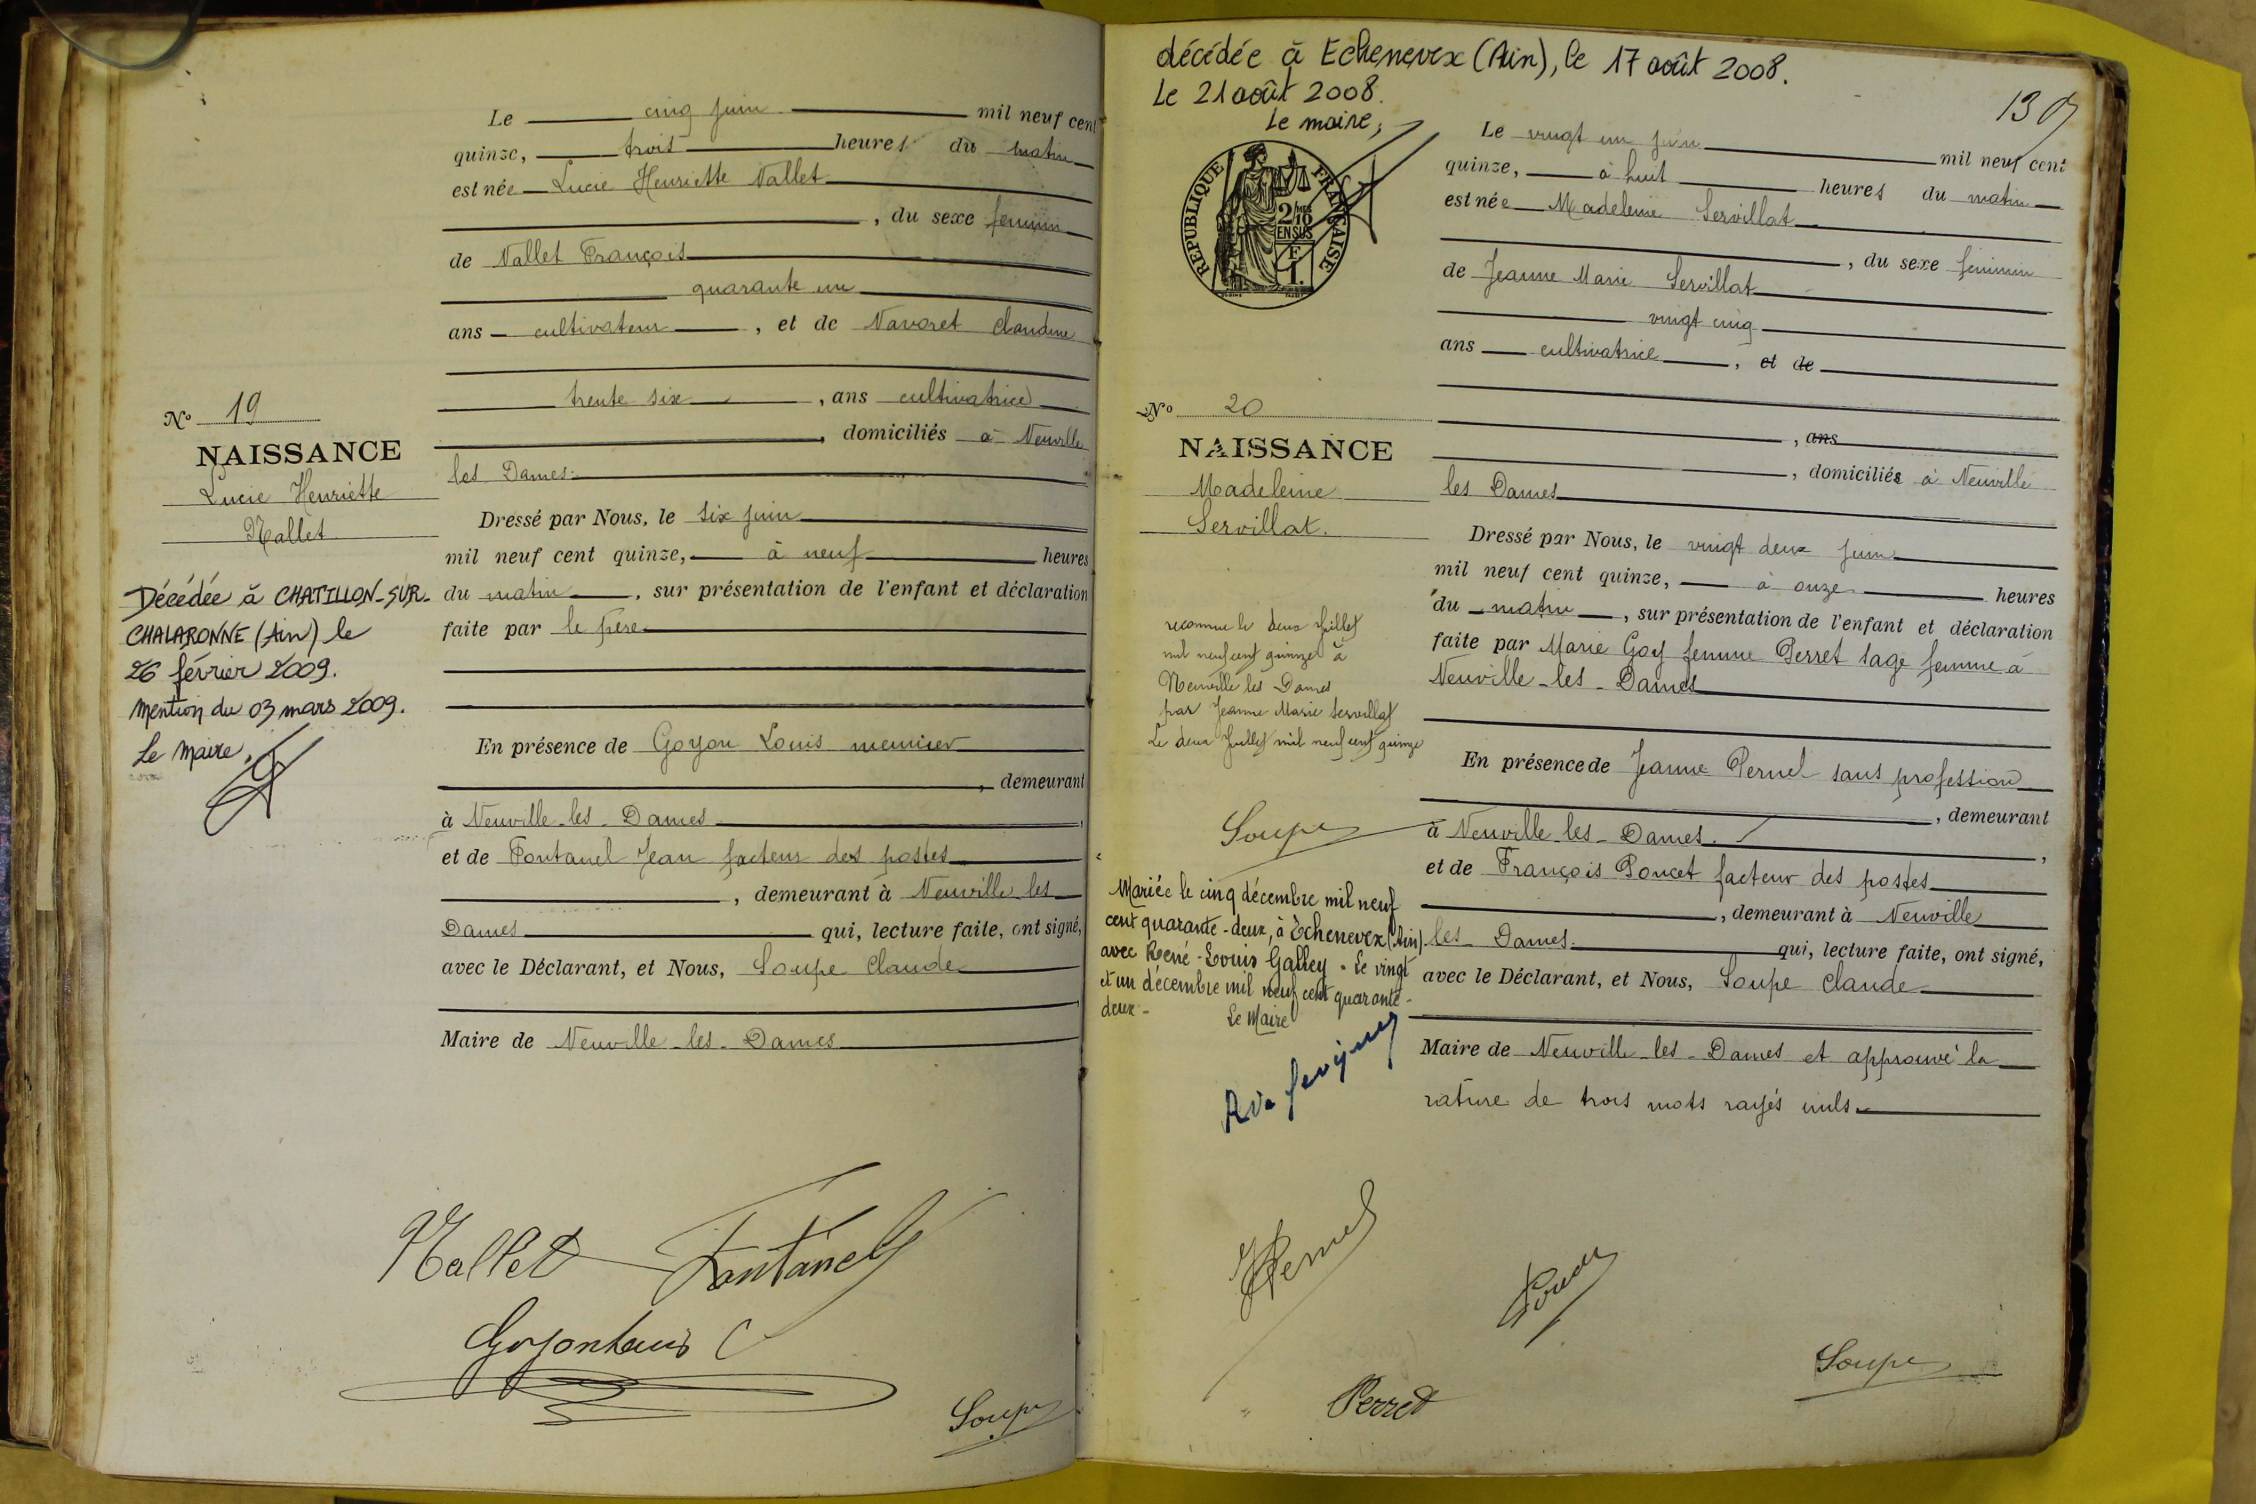 Le cinq juin mil neuf cent
quinze, trois heures du matin
est née Lucie Henriette Nallet
, du sexe feminin
de Nallet François
quarante un
ans cultivateur , et de Navoret Claudine
trente six , ans cultivatrice
, domiciliés à Neuville
les Dames
Dressé par Nous, le six juin
mil neuf cent quinze, à neuf heures
du matin , sur présentation de l'enfant et déclaration
faite par le père
En présence de Goyon Louis menuisier
, demeurant
à Neuville les Dames ,
et de Fontanel Jean facteur des postes
, demeurant à Neuville les
Dames qui, lecture faite, ont signé,
avec le Déclarant, et Nous, Soupe Claude
Maire de Neuville les Dames
No 19
NAISSANCE
Lucie Henriette
Nallet
Décédée à CHATILLON-SUR-
CHALARONNE (Ain) le
26 février 2009.
Mention du 03 mars 2009.
Le Maire,
Nallet Fontanel
Goyon Louis
Soupe
décédée à Echenevex (Ain), le 17 août 2008.
Le 21 août 2008.
Le maire,
REPUBLIQUE FRANÇAISE
2/10
EN SUS
F
1.
13
Le vingt un juin mil neuf cent
quinze, à huit heures du matin
est née Madeleine Servillat
, du sexe feminin
de Jeanne Marie Servillat
vingt cinq
ans cultivatrice , et de
, ans
, domiciliés à Neuville
les Dames
Dressé par Nous, le vingt deux juin
mil neuf cent quinze, à onze heures
du matin , sur présentation de l'enfant et déclaration
faite par Marie Goy femme Perret sage femme à
Neuville-les-Dames
En présence de Jeanne Pernel sans profession
, demeurant
à Neuville les-Dames. ,
et de François Poncet facteur des postes
, demeurant à Neuville
les Dames. qui, lecture faite, ont signé,
avec le Déclarant, et Nous, Soupe Claude
Maire de Neuville-les-Dames et approuvé la
rature de trois mots rayés nuls
No 20
NAISSANCE
Madeleine
Servillat.
reconnue le deux Juillet
mil neuf cent quinze à
Neuville les Dames
par Jeanne Marie Servillat
Le deux Juillet mil neuf cent quinze
Soupe
Mariée le cinq décembre mil neuf
cent quarante-deux, à Echenevex (Ain)
avec René-Louis Galley. Le vingt
et un décembre mil neuf cent quarante-
deux-
Le Maire
JPernel
Perret
Soupe